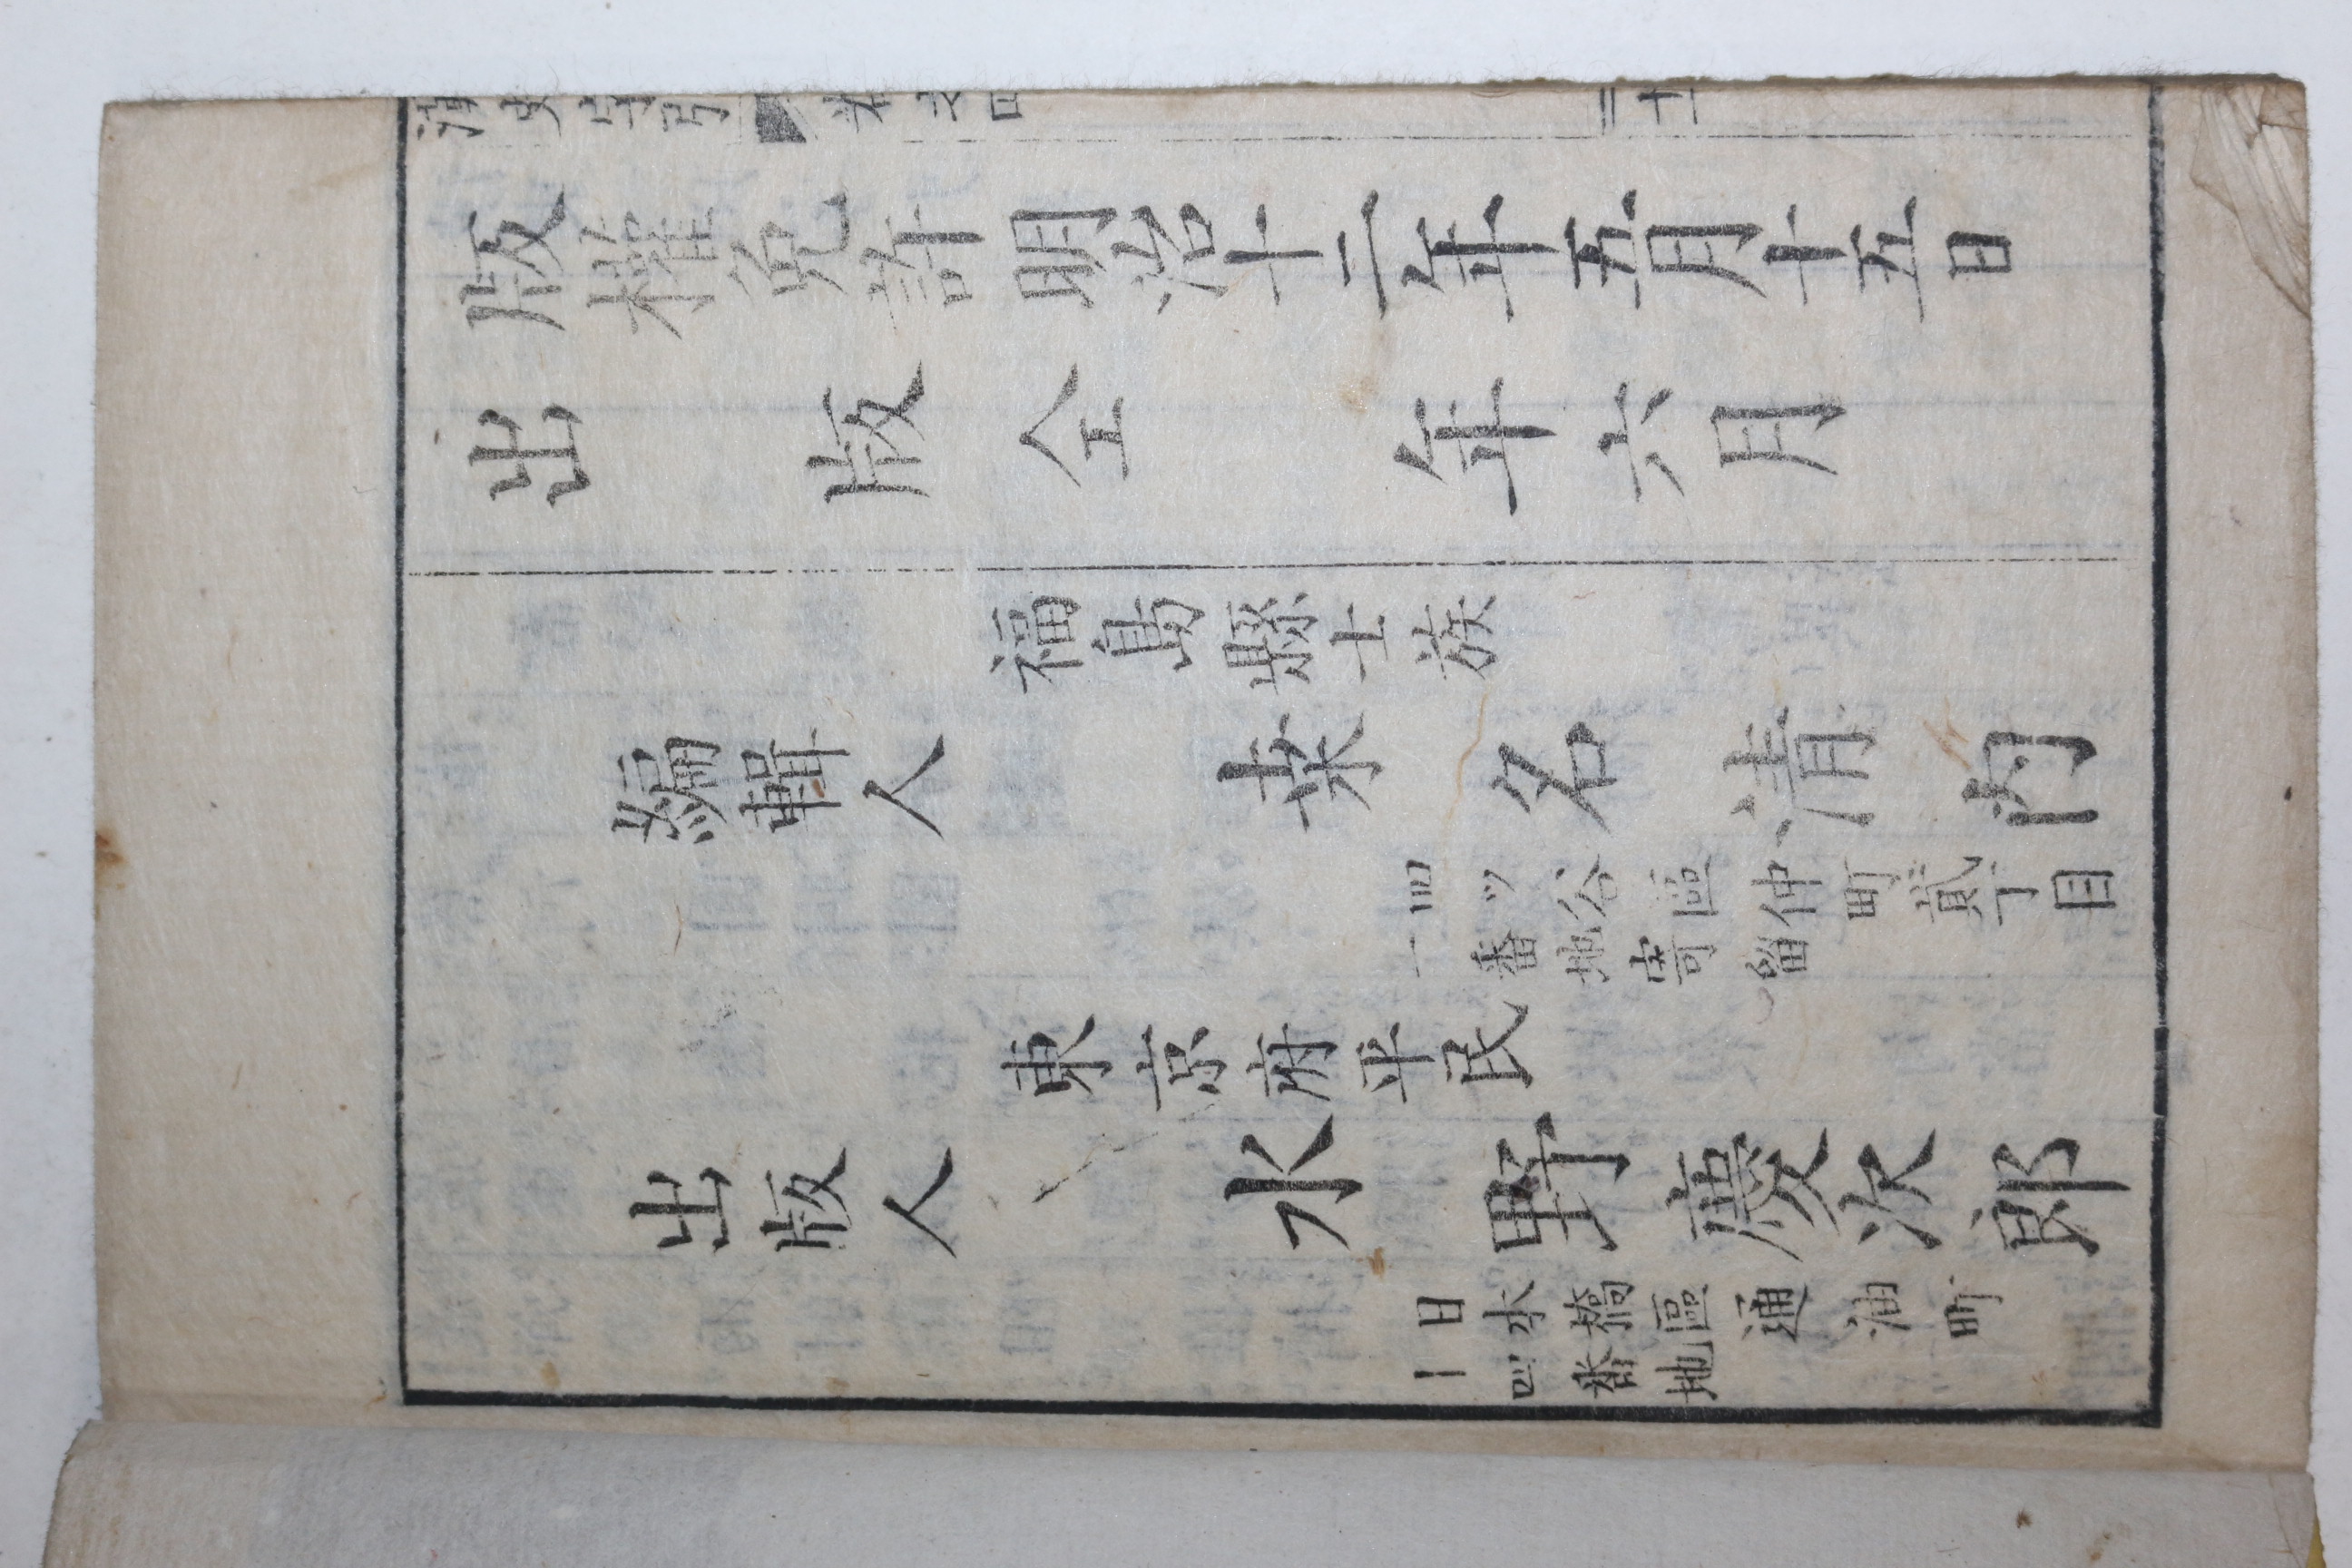 版權免許明治十二年五月十五日
出版仝年六月
福島縣士族
編輯人 桒名清
四ッ谷區仲町貳丁目
一番地寄留
東京府平民
出版人 水野慶次郎
日本橋區通油町
四番地